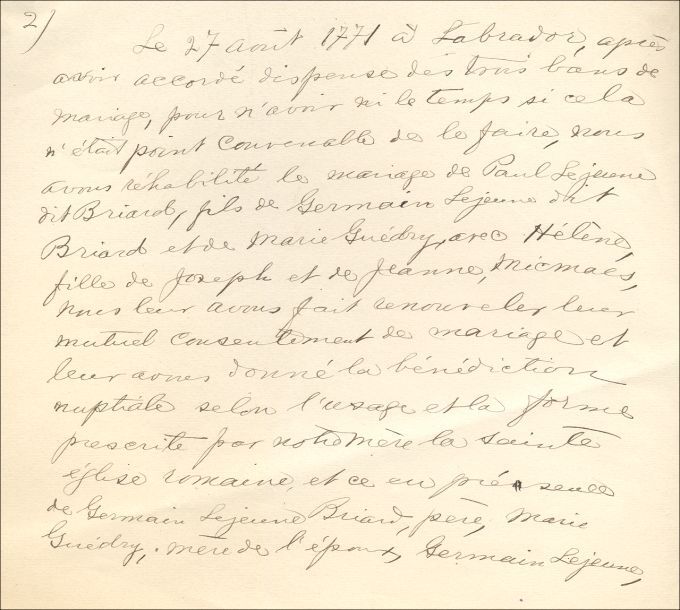 2)
Le 27 août 1771 à Labrador, après
avoir accordé dispense des trois bans de
mariage, pour n'avoir ni le temps si cela
n'était point convenable de le faire, nous
avons réhabilité le mariage de Paul Lejeune
dit Briard, fils de Germain Lejeune dit
Briard et de Marie Guédry, avec Hélène,
fille de Joseph et de Jeanne, Micmacs,
nous leur avons fait renouveler leur
mutuel consentement de mariage et
leur avons donné la bénédiction
nuptiale selon l'usage et la forme
prescrite par notre mère la sainte
église romaine, et ce en présence
de Germain Lejeune Briard, père, Marie
Guédry, mère de l'époux, Germain Lejeune,